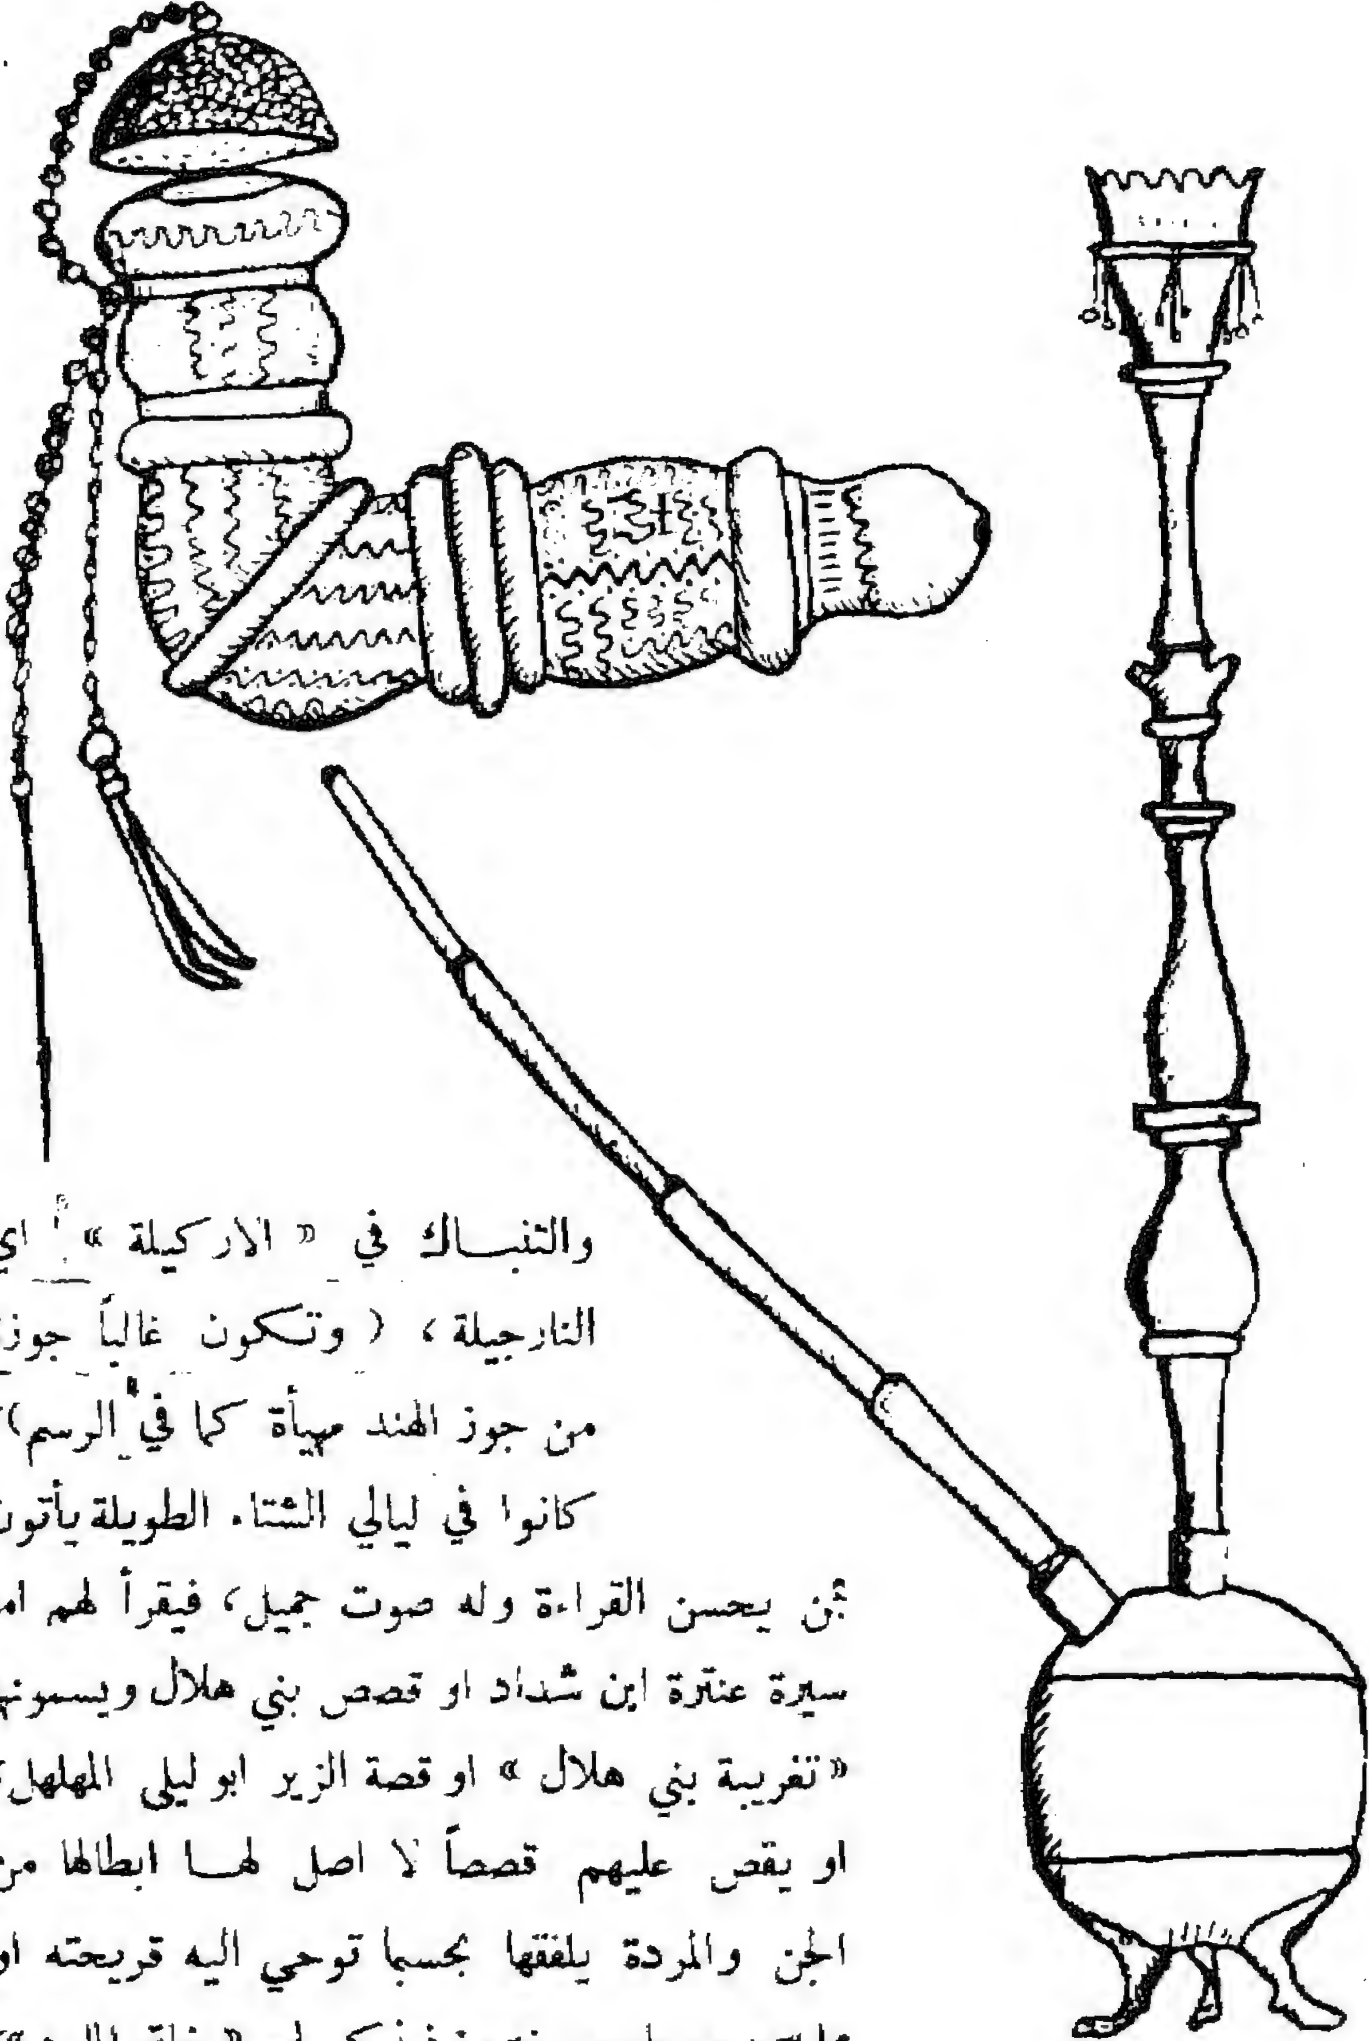 والتنبـاك في « الاركيلة » اي
النارجيلة ، ( وتـكون غالباً جوزة
من جوز الهند مهيأة كما في الرسم )
كانوا في ليالي الشتاء الطويلة يأتون
بمن يحسن القراءة وله صوت جميل ، فيقرأ لهم اما
سيرة عنترة ابن شداد او قصص بني هلال ويسمونها
« تغريبة بني هلال » او قصة الزير ابو ليلى المهلهل
او يقص عليهم قصصاً لا اصل لهـا ابطالها من
الجن والمردة يلفقها بحسبما توحي اليه قريحته او